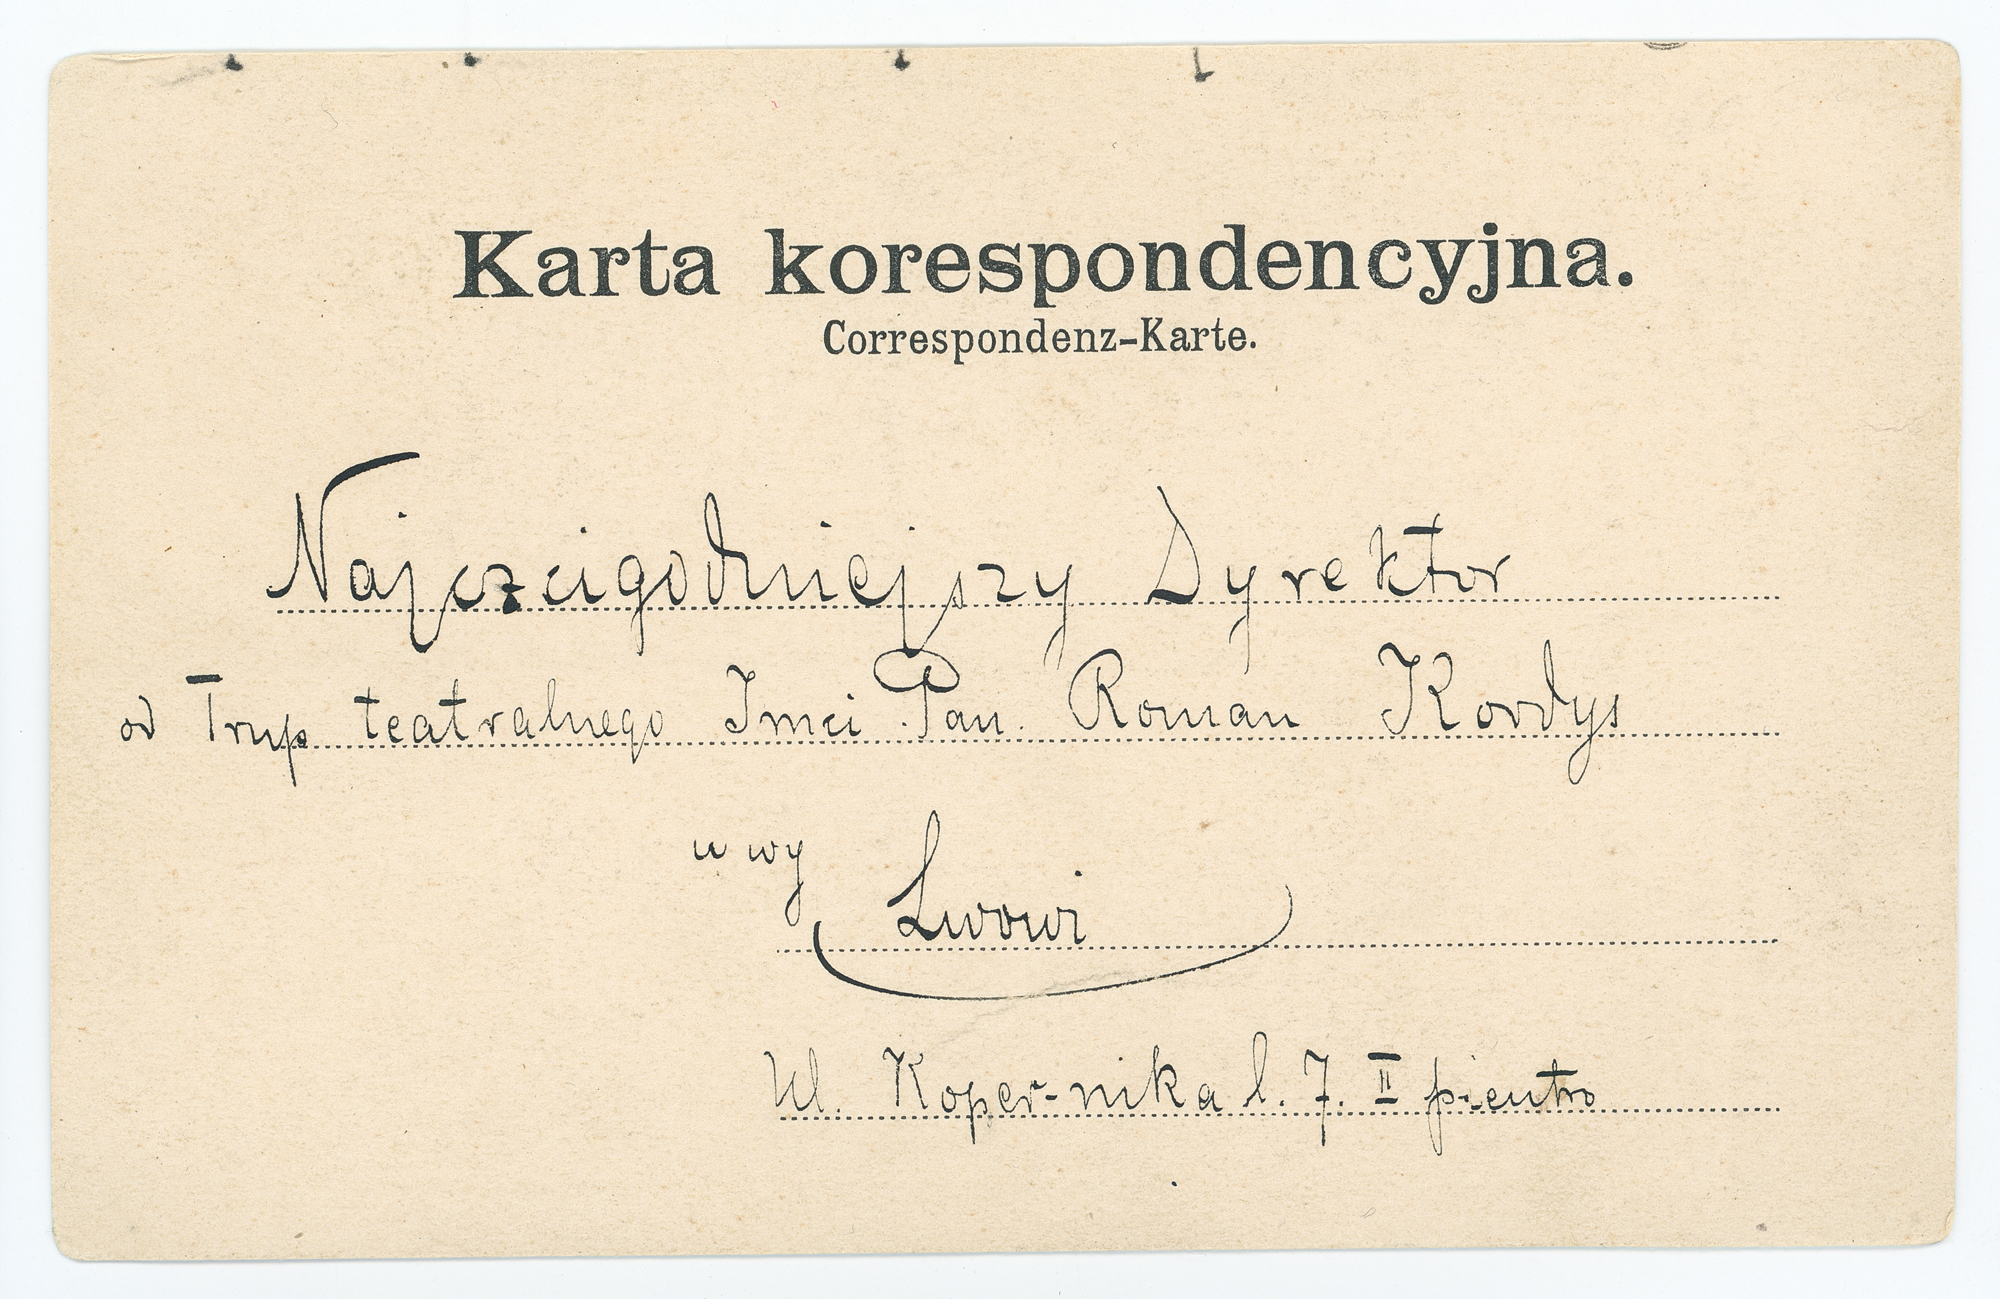 Karta korespondencyjna.
Correspondenz-Karte.
Najczcigodniejszy Dyrektor
od Trup teatralnego Imci Pan. Roman Kordys
u wy
Lwowi
Ul. Koper-nika l. 7. II pientro